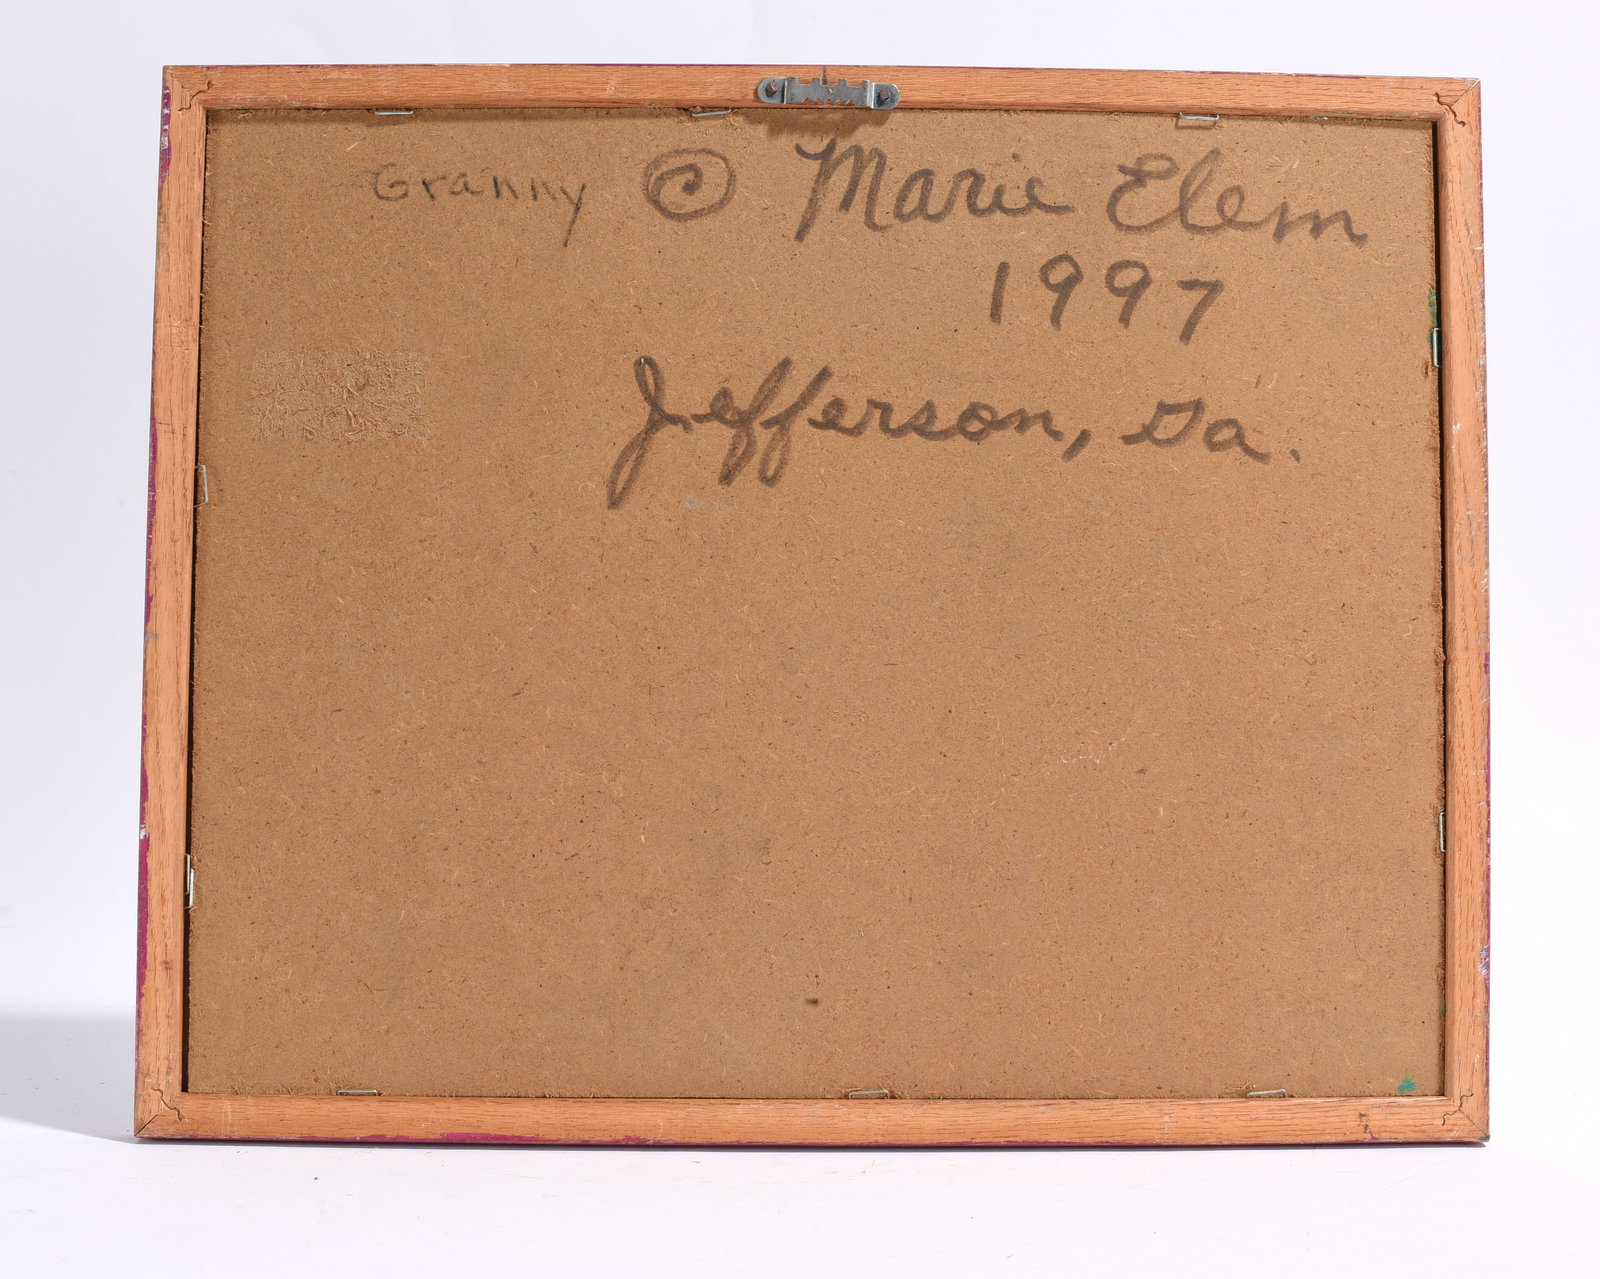 Granny © Marie Elem
1997
Jefferson, Ga.